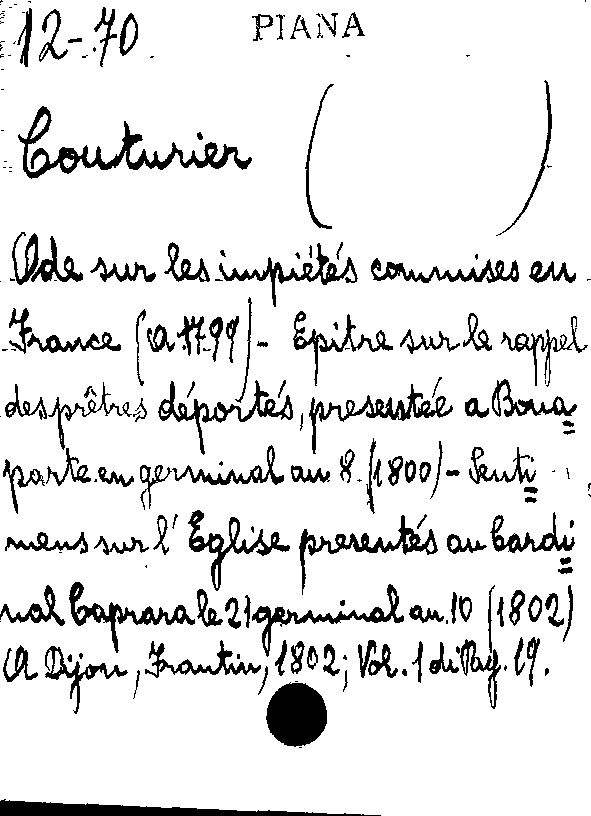 12-70 PIANA
Couturier ( )
Ode sur les impiétés commises en
France (a 1799) - Epitre sur le rappel
des prêtres déportés, presentée a Bona=
parte en germinal an 8. (1800) - Senti=
mens sur l'Eglise presentés au Cardi=
nal Caprara le 21 germinal an 10 (1802)
A Dijon, Frantin, 1802; Vol. 1 di Pag. 19.